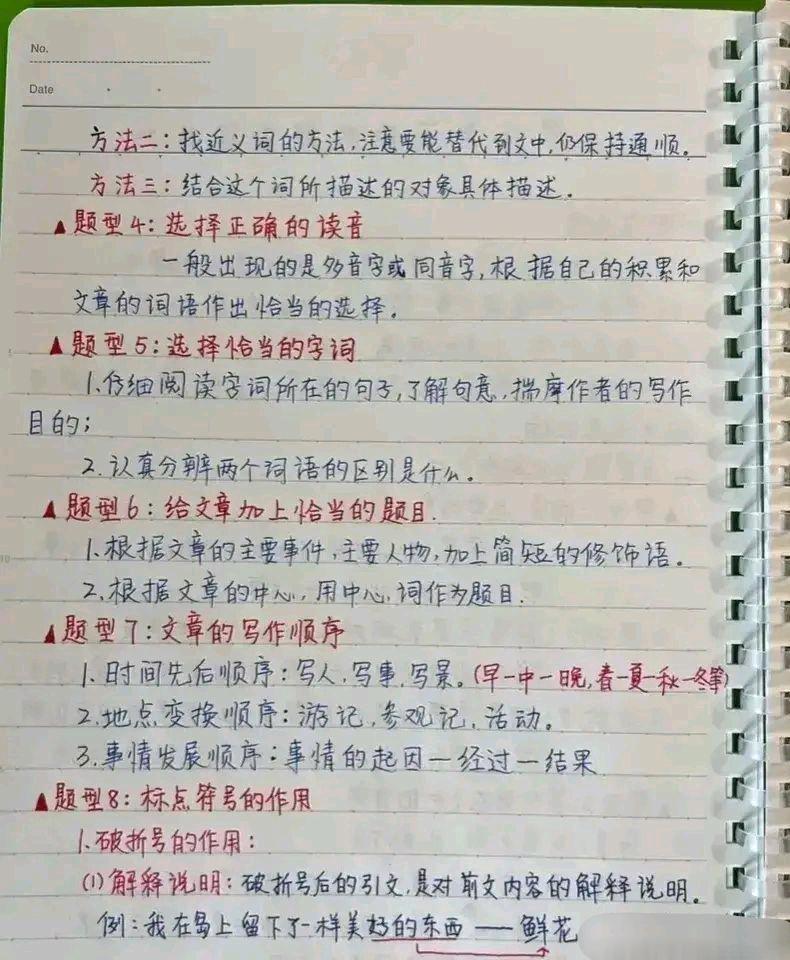 No.
Date
方法二：找近义词的方法，注意要能替代到文中，仍保持通顺。
方法三：结合这个词所描述的对象具体描述。
▲题型4：选择正确的读音
一般出现的是多音字或同音字，根据自己的积累和
文章的词语作出恰当的选择。
▲题型5：选择恰当的字词
1.仔细阅读字词所在的句子，了解句意，揣摩作者的写作
目的；
2.认真分辨两个词语的区别是什么。
▲题型6：给文章加上恰当的题目.
1.根据文章的主要事件，主要人物，加上简短的修饰语。
2.根据文章的中心，用中心词作为题目.
▲题型7：文章的写作顺序
1.时间先后顺序：写人，写事，写景。(早一中一晚，春一夏一秋一冬等)
2.地点变换顺序：游记，参观记，活动。
3.事情发展顺序：事情的起因一经过一结果
▲题型8：标点符号的作用
1.破折号的作用：
(1)解释说明：破折号后的引文，是对前文内容的解释说明。
例：我在岛上留下了一样美好的东西——鲜花